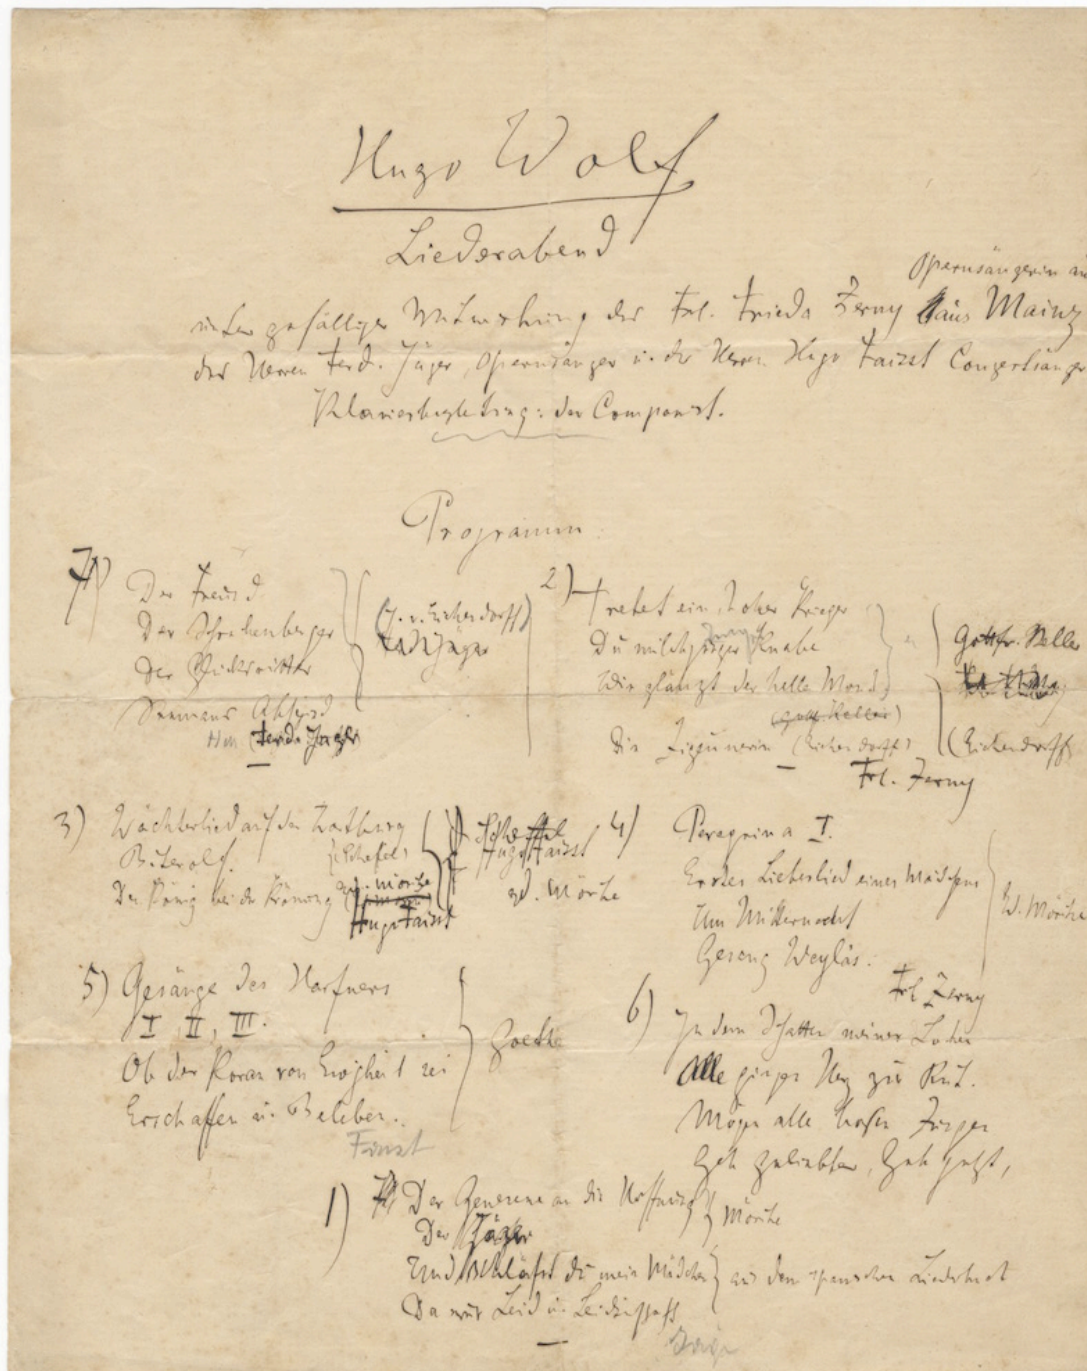 Hugo Wolf
Liederabend
Opernsängerin
unter gefälliger Mitwirkung des Frl. Frieda Zerny aus Mainz
des Herren Ferd. Jäger, Opernsänger u. des Herrn Hugo Faisst Conzertsänger
Klavierbegleitung: der Componist.
Programm
7)
Der Freund
Der Schreckenberger
Der Glücksritter
Seemanns Abschied
(J. v. Eichendorff)
Ferd. Jäger
Hrn Ferd. Jäger
2) Tretet ein hoher Krieger
Du milchjunger Knabe
Wie glänzt der helle Mond
(Gott. Keller)
Die Zigeunerin (Eichendorff)
Gottfr. Keller
(Eichendorff)
Frl. Zerny
3) Wächterlied auf der Wartburg
Biterolf.
(Scheffel)
Der König bei der Krönung
Mörike
Hugo Faisst
Scheffel
Hugo Faisst
Ed. Mörike
4) Peregrina I.
Erstes Liebeslied eines Mädchens
Um Mitternacht
Gesang Weylas.
Mörike
Frl Zerny
5) Gesänge des Harfners
I, II, III.
Ob der Koran von Ewigkeit sei
Erschaffen u. Beleben.
Goethe
Faisst
6) In dem Schatten meiner Locken
Alle gingen Herz zur Ruh.
Mögen alle bösen Zungen
Geh Geliebter, Geh jetzt,
1) Der Genesene an die Hoffnung
Der Jäger
Mörike
Und schläfst du mein Mädchen
Da nur Leid u. Leidenschaft
aus dem spanischen Liederbuch
Jäger